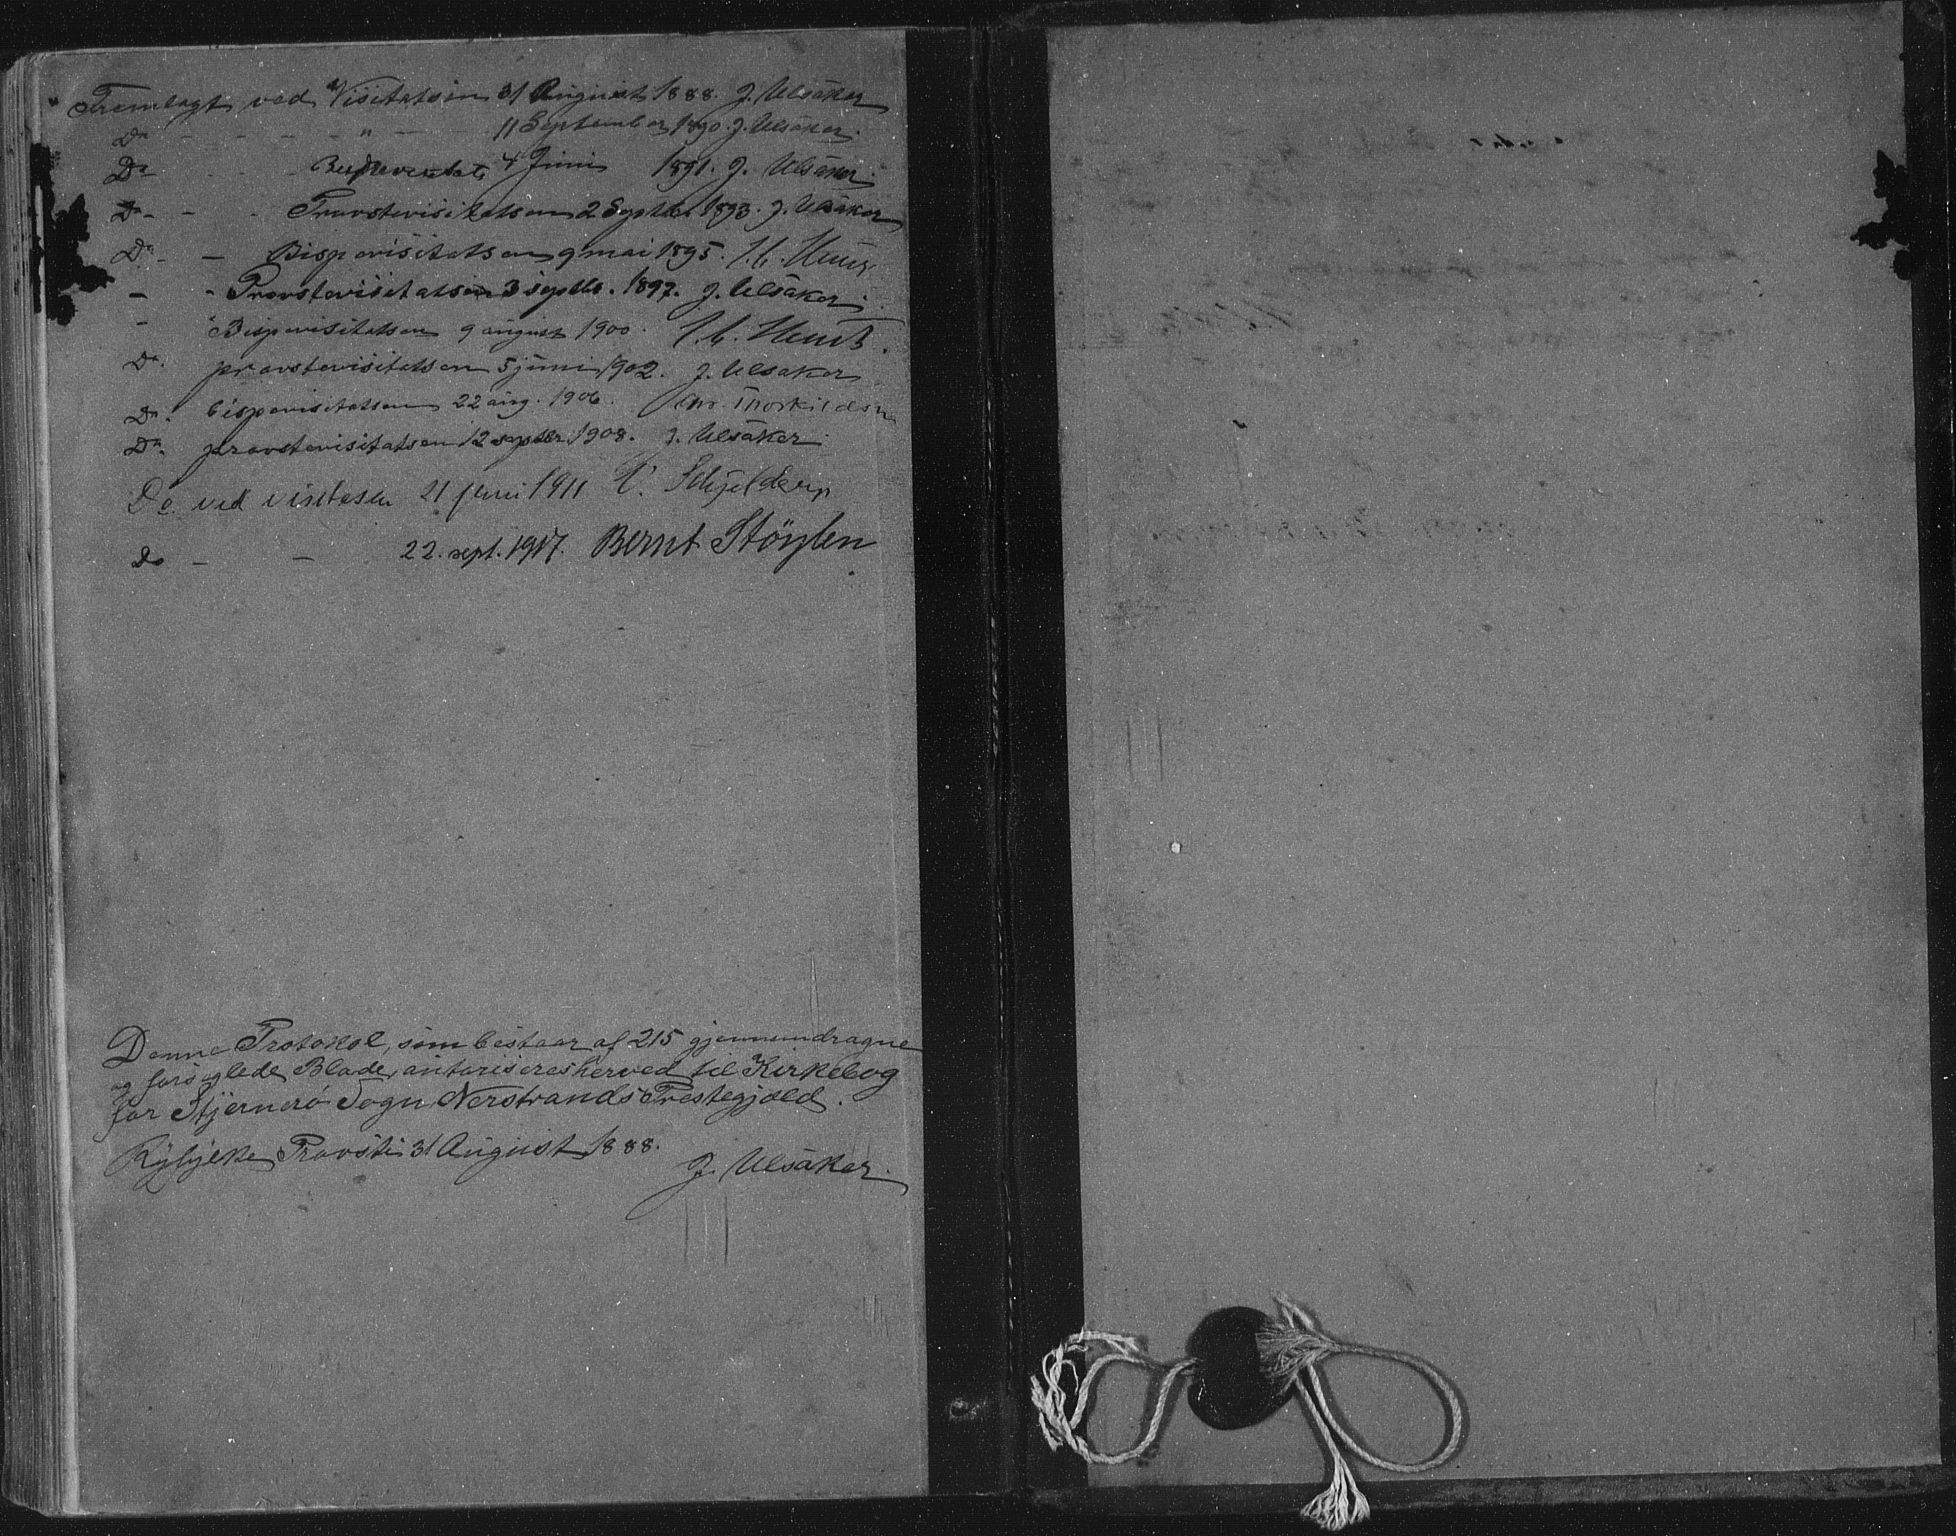 Fremlagt ved Visitatsen 31 August 1888. J. Ulsåker
Do - - - - " - - 11 September 1890. J. Ulsåker.
Do - - - 4 Juni 1891. J. Ulsåker.
Do - - - Provstevisitatsen 2 Septbr 1893. J. Ulsåker
Do - - Bispevisitatsen 9 mai 1895.
- - Provstevisitatsen 3 septbr. 1897. J. Ulsåker.
- Bispevisitatsen 9 august 1900.
Do. provstevisitatsen 5 juni 1902. J. Ulsåker
Do. bispevisitatsen 22 aug. 1906. Chr. Thorkildsen
Do. provstevisitatsen 12 septbr 1908. J. Ulsåker.
Do. ved visitasen 21 juni 1911 Schjelderup
do - - 22. sept. 1917. Bernt Støylen
Denne Protokol, som bestaar af 215 gjennemdragne
og forseglede Blade, autoriseres herved til Kirkebog
for Stjernerö Sogn, Nerstrands Prestegjæld.
Ryfylke Provsti 31 August 1888.
J. Ulsåker.